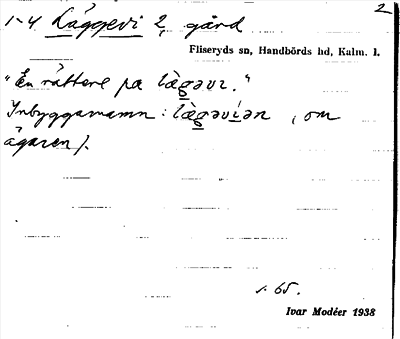 2
1-4 Läggevi 2, gård
Fliseryds sn, Handbörds hd, Kalm. l.
"En rättare på lägəvı."
Inbyggarnamn: lägəvíən, om
ägaren).
s. 65.
Ivar Modéer 1938